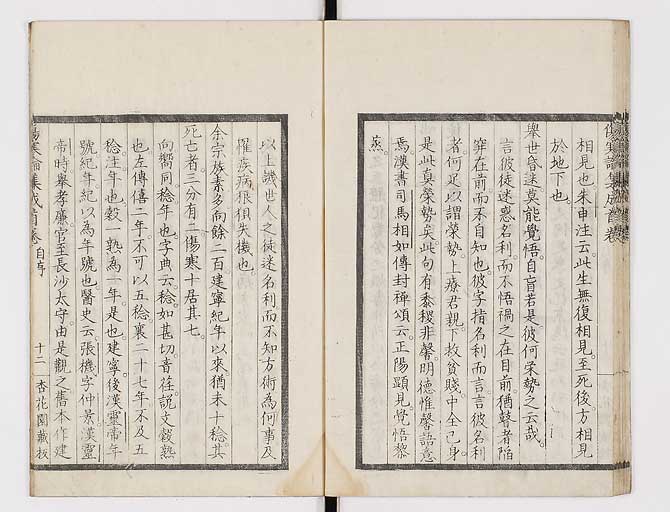 相見也朱申注云此生無復相見至死後方相見
於地下也
舉世昏迷莫能覺悟自盲若是彼何榮勢之云哉
言彼徒迷惑名利而不悟禍之在目前猶瞽者陷
穽在前而不自知也彼字指名利而言言彼名利
者何足以謂榮勢上療君親下救貧賤中全己身
是此真榮勢矣此句有黍稷非馨明德惟馨語意
焉漢書司馬相如傳封禪頌云正陽顯見覺悟黎
烝
以上譏世人之徒迷名利而不知方術為何事及
罹疾病狼狽失機也
余宗族素多向餘二百建寧紀年以來猶未十稔其
死亡者三分有二傷寒十居其七
向嚮同稔年也字典云稔如甚切音荏説文穀熟
也左傳僖二年不可以五稔襄二十七年不及五
稔注年也穀一熟為一年是也建寧後漢靈帝年
號紀年紀以為年號也醫史云張機字仲景漢靈
帝時舉孝廉官至長沙太守由是觀之舊本作建
傷寒論集成首卷 自序 十二 杏花園藏板